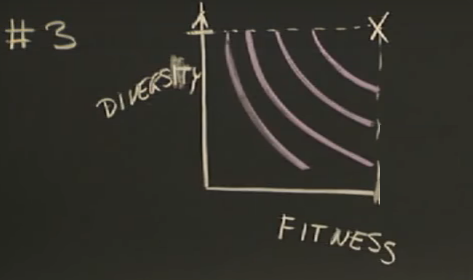 #3
DIVERSITY
X
FITNESS